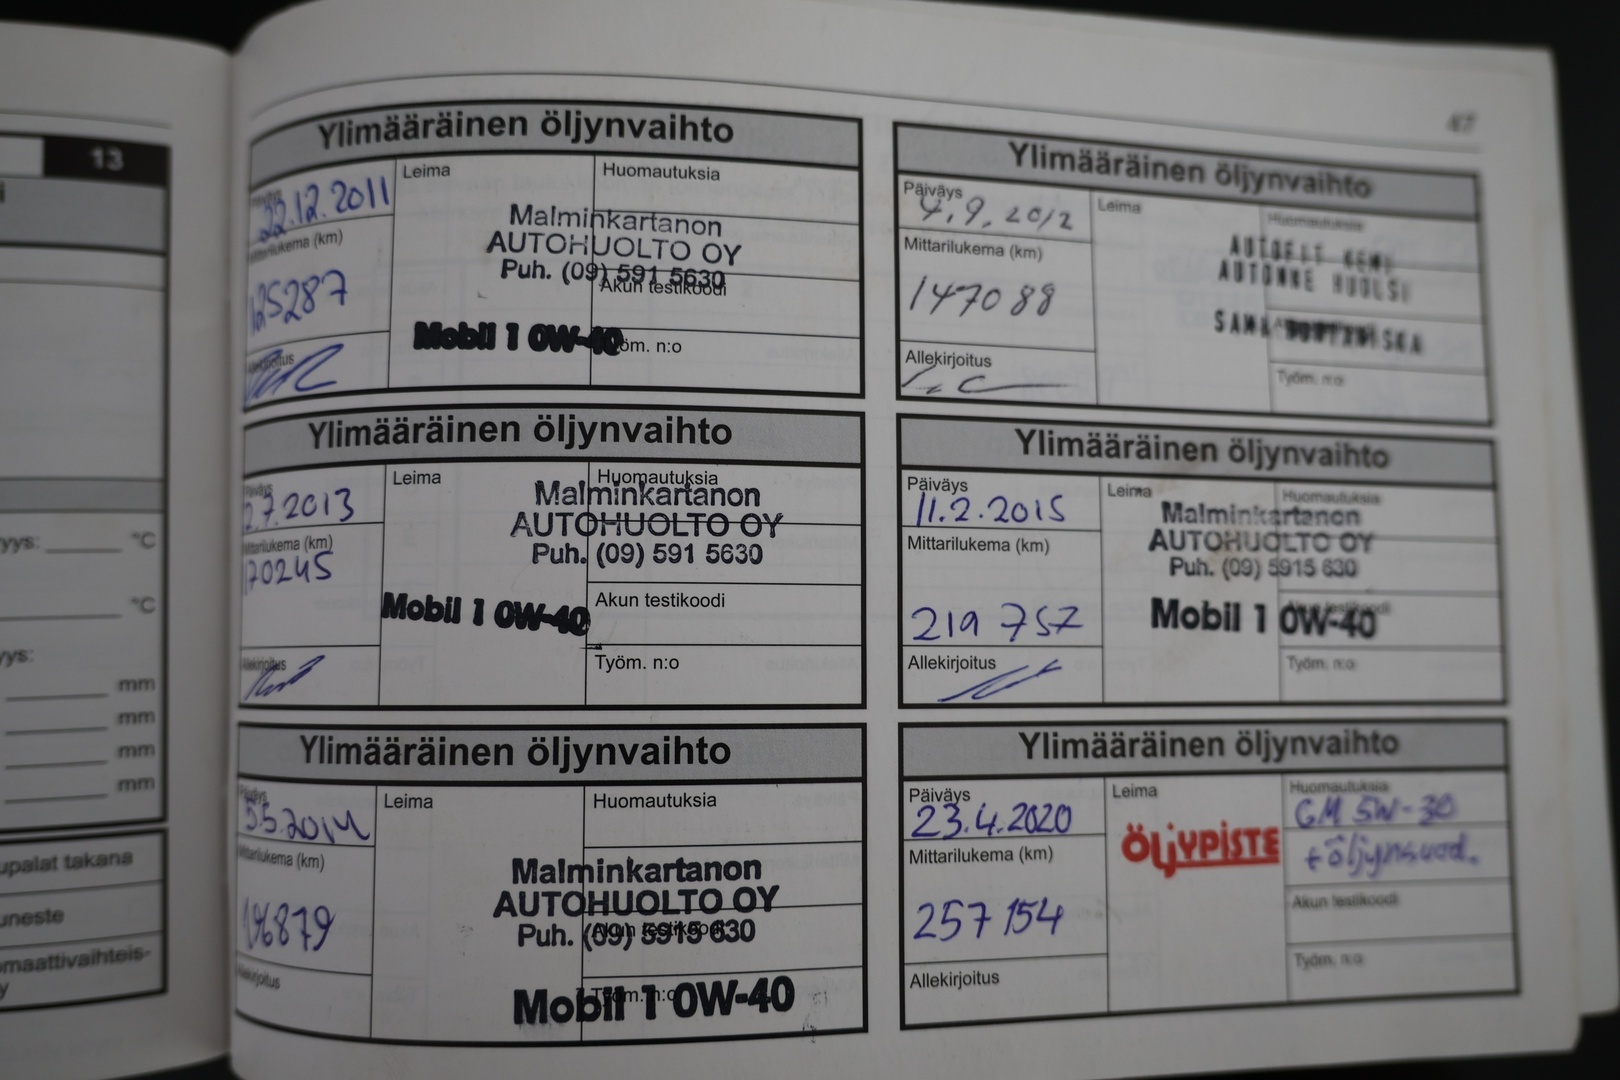 47
13
Ylimääräinen öljynvaihto
22.12.2011
Leima
Huomautuksia
Mittarilukema (km)
125287
Malminkartanon
AUTOHUOLTO OY
Puh. (09) 591 5630
Akun testikoodi
Mobil 1 0W-40
Työm. n:o
Allekirjoitus
Ylimääräinen öljynvaihto
Päiväys
4.9.2012
Leima
Huomautuksia
Mittarilukema (km)
147088
AUTOFIT KEMI
Allekirjoitus
Työm. n:o
Ylimääräinen öljynvaihto
Päiväys
2.7.2013
Leima
Huomautuksia
Malminkartanon
AUTOHUOLTO OY
Puh. (09) 591 5630
Mittarilukema (km)
170245
Mobil 1 0W-40
Akun testikoodi
Allekirjoitus
Työm. n:o
Ylimääräinen öljynvaihto
Päiväys
11.2.2015
Leima
Huomautuksia
Malminkartanon
AUTOHUOLTO OY
Puh. (09) 5915 630
Mittarilukema (km)
219 757
Mobil 1 0W-40
Akun testikoodi
Allekirjoitus
Työm. n:o
Ylimääräinen öljynvaihto
Päiväys
5.5.2014
Leima
Huomautuksia
Mittarilukema (km)
196879
Malminkartanon
AUTOHUOLTO OY
Puh. (09) 5915 630
Akun testikoodi
Mobil 1 0W-40
Työm. n:o
Allekirjoitus
Ylimääräinen öljynvaihto
Päiväys
23.4.2020
Leima
ÖLJYPISTE
Huomautuksia
GM 5W-30
+ öljynsuod.
Mittarilukema (km)
257 154
Akun testikoodi
Allekirjoitus
Työm. n:o
yys: °C
°C
yys:
mm
mm
mm
mm
upalat takana
uneste
omaattivaihteis-
y